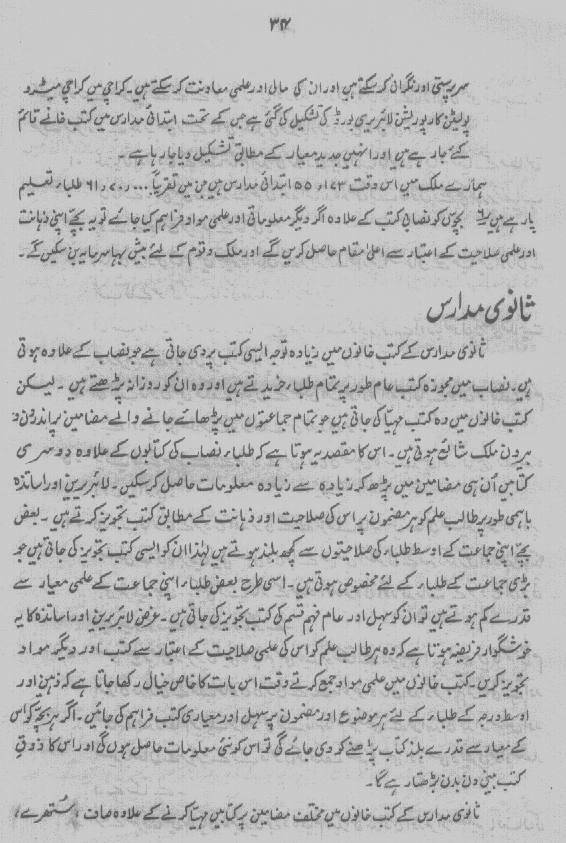 ۳۴
سرپرستی اور نگرانی کرسکتے ہیں اور ان کی مالی اور علمی معاونت کرسکتے ہیں۔ کراچی میں کراچی میٹرو
پولیٹن کارپوریشن لائبریری بورڈ کی تشکیل کی گئی ہے جس کے تحت ابتدائی مدارس میں کتب خانے قائم
کئے جارہے ہیں اور انہیں جدید معیار کے مطابق تشکیل دیا جارہا ہے۔
ہمارے ملک میں اس وقت ۵۵۰۱۷۳ ابتدائی مدارس ہیں جن میں تقریباً طلباء تعلیم
پارہے ہیں بچوں کو نصابی کتب کے علاوہ اگر دیگر معلوماتی اور علمی مواد فراہم کیا جائے تو یہ بچے اپنی ذہانت
اور علمی صلاحیت کے اعتبار سے اعلیٰ مقام حاصل کریں گے اور ملک و قوم کے لئے بیش بہا سرمایہ بن سکیں گے۔
ثانوی مدارس
ثانوی مدارس کے کتب خانوں میں زیادہ توجہ ایسی کتب پر دی جاتی ہے جو نصاب کے علاوہ ہوتی
ہیں۔ نصاب میں مجوزہ کتب عام طور پر تمام طلباء خریدتے ہیں اور وہ ان کو روزانہ پڑھتے ہیں۔ لیکن
کتب خانوں میں وہ کتب مہیا کی جاتی ہیں جو تمام جماعتوں میں پڑھائے جانے والے مضامین پر اندرون و
بیرون ملک شائع ہوتی ہیں۔ اس کا مقصد یہ ہوتا ہے کہ طلباء نصاب کی کتابوں کے علاوہ دوسری
کتابیں اُن ہی مضامین میں پڑھ کر زیادہ سے زیادہ معلومات حاصل کرسکیں۔ لائبریرین اور اساتذہ
باہمی طور پر طالب علم کو ہر مضمون پر اس کی صلاحیت اور ذہانت کے مطابق کتب تجویز کرتے ہیں۔ بعض
بچے اپنی جماعت کے اوسط طلباء کی صلاحیتوں سے کچھ بلند ہوتے ہیں لہٰذا ان کو ایسی کتب تجویز کی جاتی ہیں جو
بڑی جماعت کے طلباء کے لئے مخصوص ہوتی ہیں۔ اسی طرح بعض طلباء اپنی جماعت کے علمی معیار سے
قدرے کم ہوتے ہیں تو ان کو سہل اور عام فہم قسم کی کتب تجویز کی جاتی ہیں۔ غرض لائبریرین اور اساتذہ کا یہ
خوشگوار فریضہ ہوتا ہے کہ وہ ہر طالب علم کو اس کی علمی صلاحیت کے اعتبار سے کتب اور دیگر مواد
تجویز کریں۔ کتب خانوں میں علمی مواد جمع کرتے وقت اس بات کا خاص خیال رکھا جاتا ہے کہ ذہین اور
اوسط درجہ کے طلباء کے لئے ہر موضوع اور مضمون پر سہل اور معیاری کتب فراہم کی جائیں۔ اگر ہر بچّہ کو اس
کے معیار سے قدرے بلند کتاب پڑھنے کو دی جائے گی تو اس کو نئی معلومات حاصل ہوں گی اور اس کا ذوقِ
کتب بینی دن بدن بڑھتا رہے گا۔
ثانوی مدارس کے کتب خانوں میں مختلف مضامین پر کتابیں مہیا کرنے کے علاوہ صاف، سُتھرے،